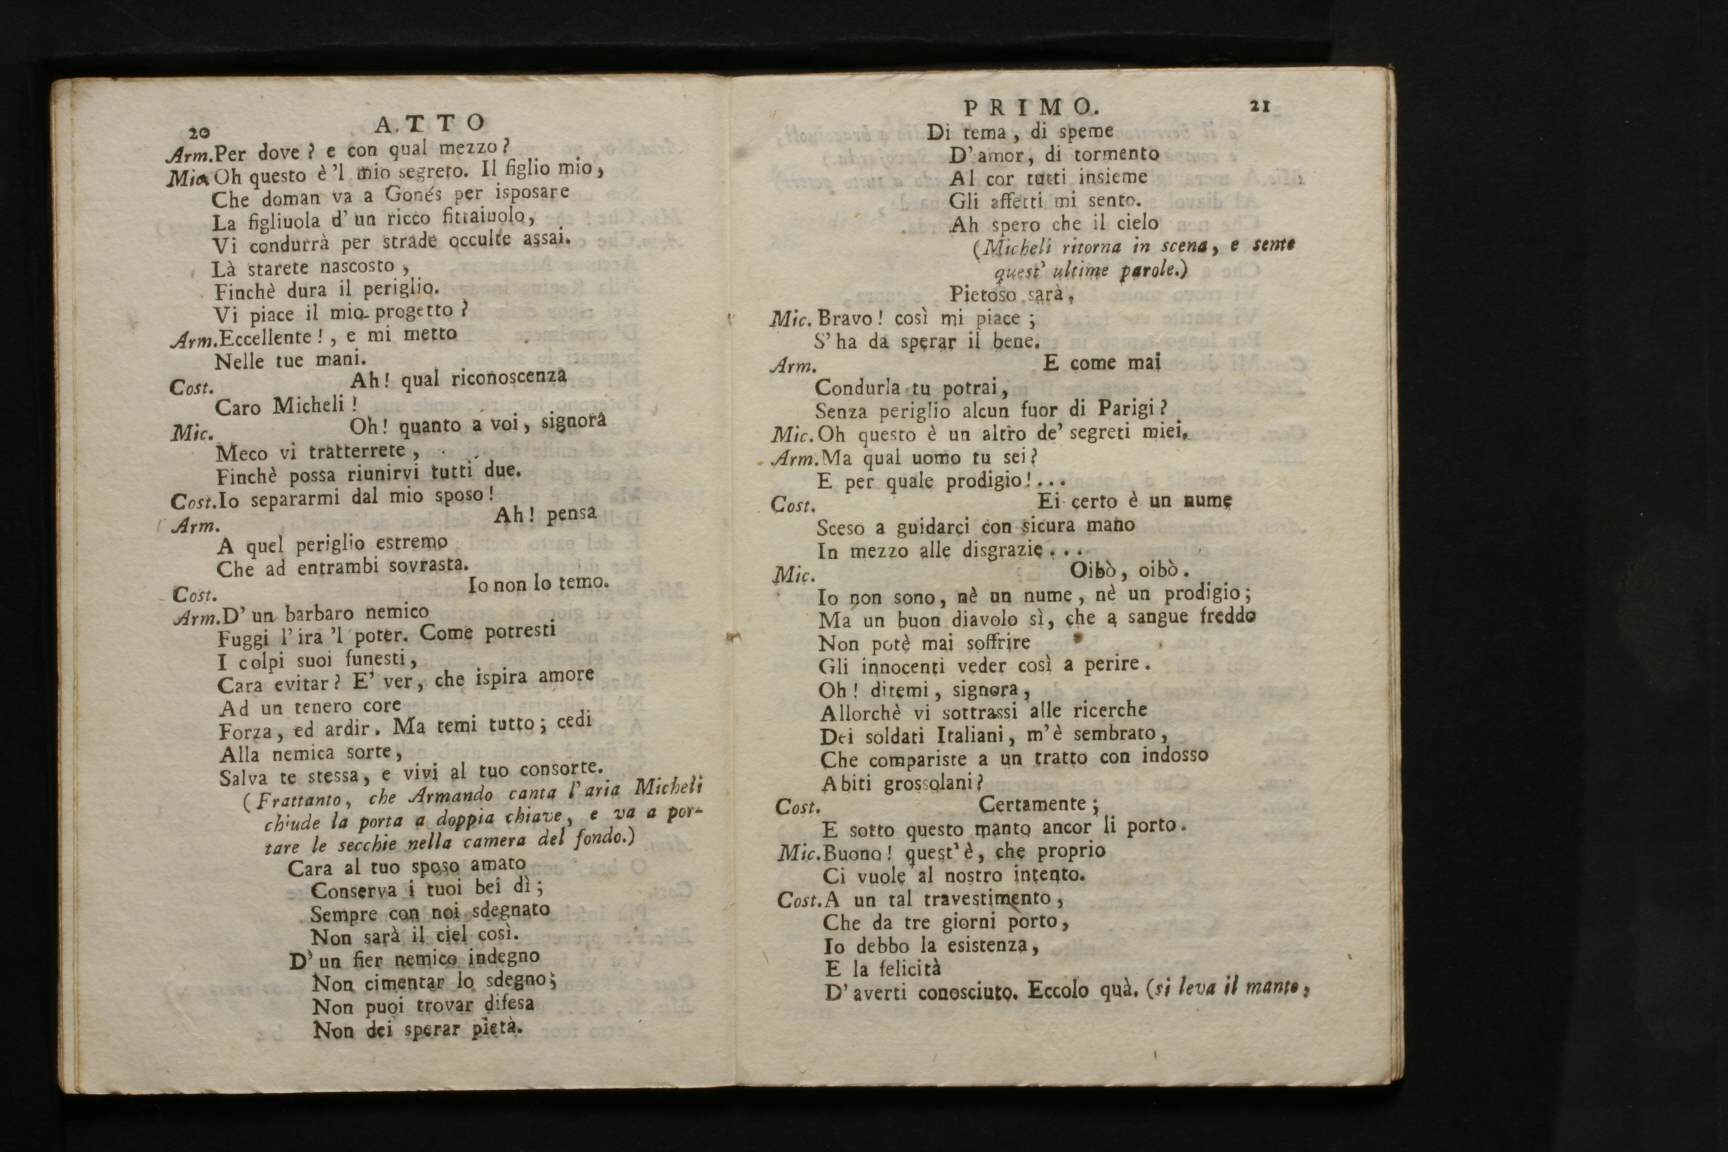 20 A.TTO
Arm.Per dove? e con qual mezzo?
Mic.Oh questo è 'l mio segreto. Il figlio mio,
Che doman va a Gonés per isposare
La figliuola d'un ricco fittaiuolo,
Vi condurrà per strade occulte assai.
Là starete nascosto,
Finchè dura il periglio.
Vi piace il mio progetto?
Arm.Eccellente!, e mi metto
Nelle tue mani.
Cost. Ah! qual riconoscenza
Caro Micheli!
Mic. Oh! quanto a voi, signora
Meco vi tratterrete,
Finchè possa riunirvi tutti due.
Cost.Io separarmi dal mio sposo!
Arm. Ah! pensa
A quel periglio estremo
Che ad entrambi sovrasta.
Cost. Io non lo temo.
Arm.D'un barbaro nemico
Fuggi l'ira 'l poter. Come potresti
I colpi suoi funesti,
Cara evitar? E' ver, che ispira amore
Ad un tenero core
Forza, ed ardir. Ma temi tutto; cedi
Alla nemica sorte,
Salva te stessa, e vivi al tuo consorte.
(Frattanto, che Armando canta l'aria Micheli
chiude la porta a doppia chiave, e va a por-
tare le secchie nella camera del fondo.)
Cara al tuo sposo amato
Conserva i tuoi bei dì;
Sempre con noi sdegnato
Non sarà il ciel così.
D'un fier nemico indegno
Non cimentar lo sdegno;
Non puoi trovar difesa
Non dei sperar pietà.
PRIMO. 21
Di tema, di speme
D'amor, di tormento
Al cor tutti insieme
Gli affetti mi sento.
Ah spero che il cielo
(Micheli ritorna in scena, e sente
quest' ultime parole.)
Pietoso sarà,
Mic. Bravo! così mi piace;
S'ha da sperar il bene.
Arm. E come mai
Condurla tu potrai,
Senza periglio alcun fuor di Parigi?
Mic.Oh questo è un altro de' segreti miei.
Arm.Ma qual uomo tu sei?
E per quale prodigio!...
Cost. Ei certo è un nume
Sceso a guidarci con sicura mano
In mezzo alle disgrazie...
Mic. Oibò, oibò.
Io non sono, nè un nume, nè un prodigio;
Ma un buon diavolo sì, che a sangue freddo
Non potè mai soffrire
Gli innocenti veder così a perire.
Oh! ditemi, signora,
Allorchè vi sottrassi alle ricerche
Dei soldati Italiani, m'è sembrato,
Che compariste a un tratto con indosso
Abiti grossolani?
Cost. Certamente;
E sotto questo manto ancor li porto.
Mic.Buono! quest'è, che proprio
Ci vuole al nostro intento.
Cost.A un tal travestimento,
Che da tre giorni porto,
Io debbo la esistenza,
E la felicità
D'averti conosciuto. Eccolo quà. (si leva il manto,